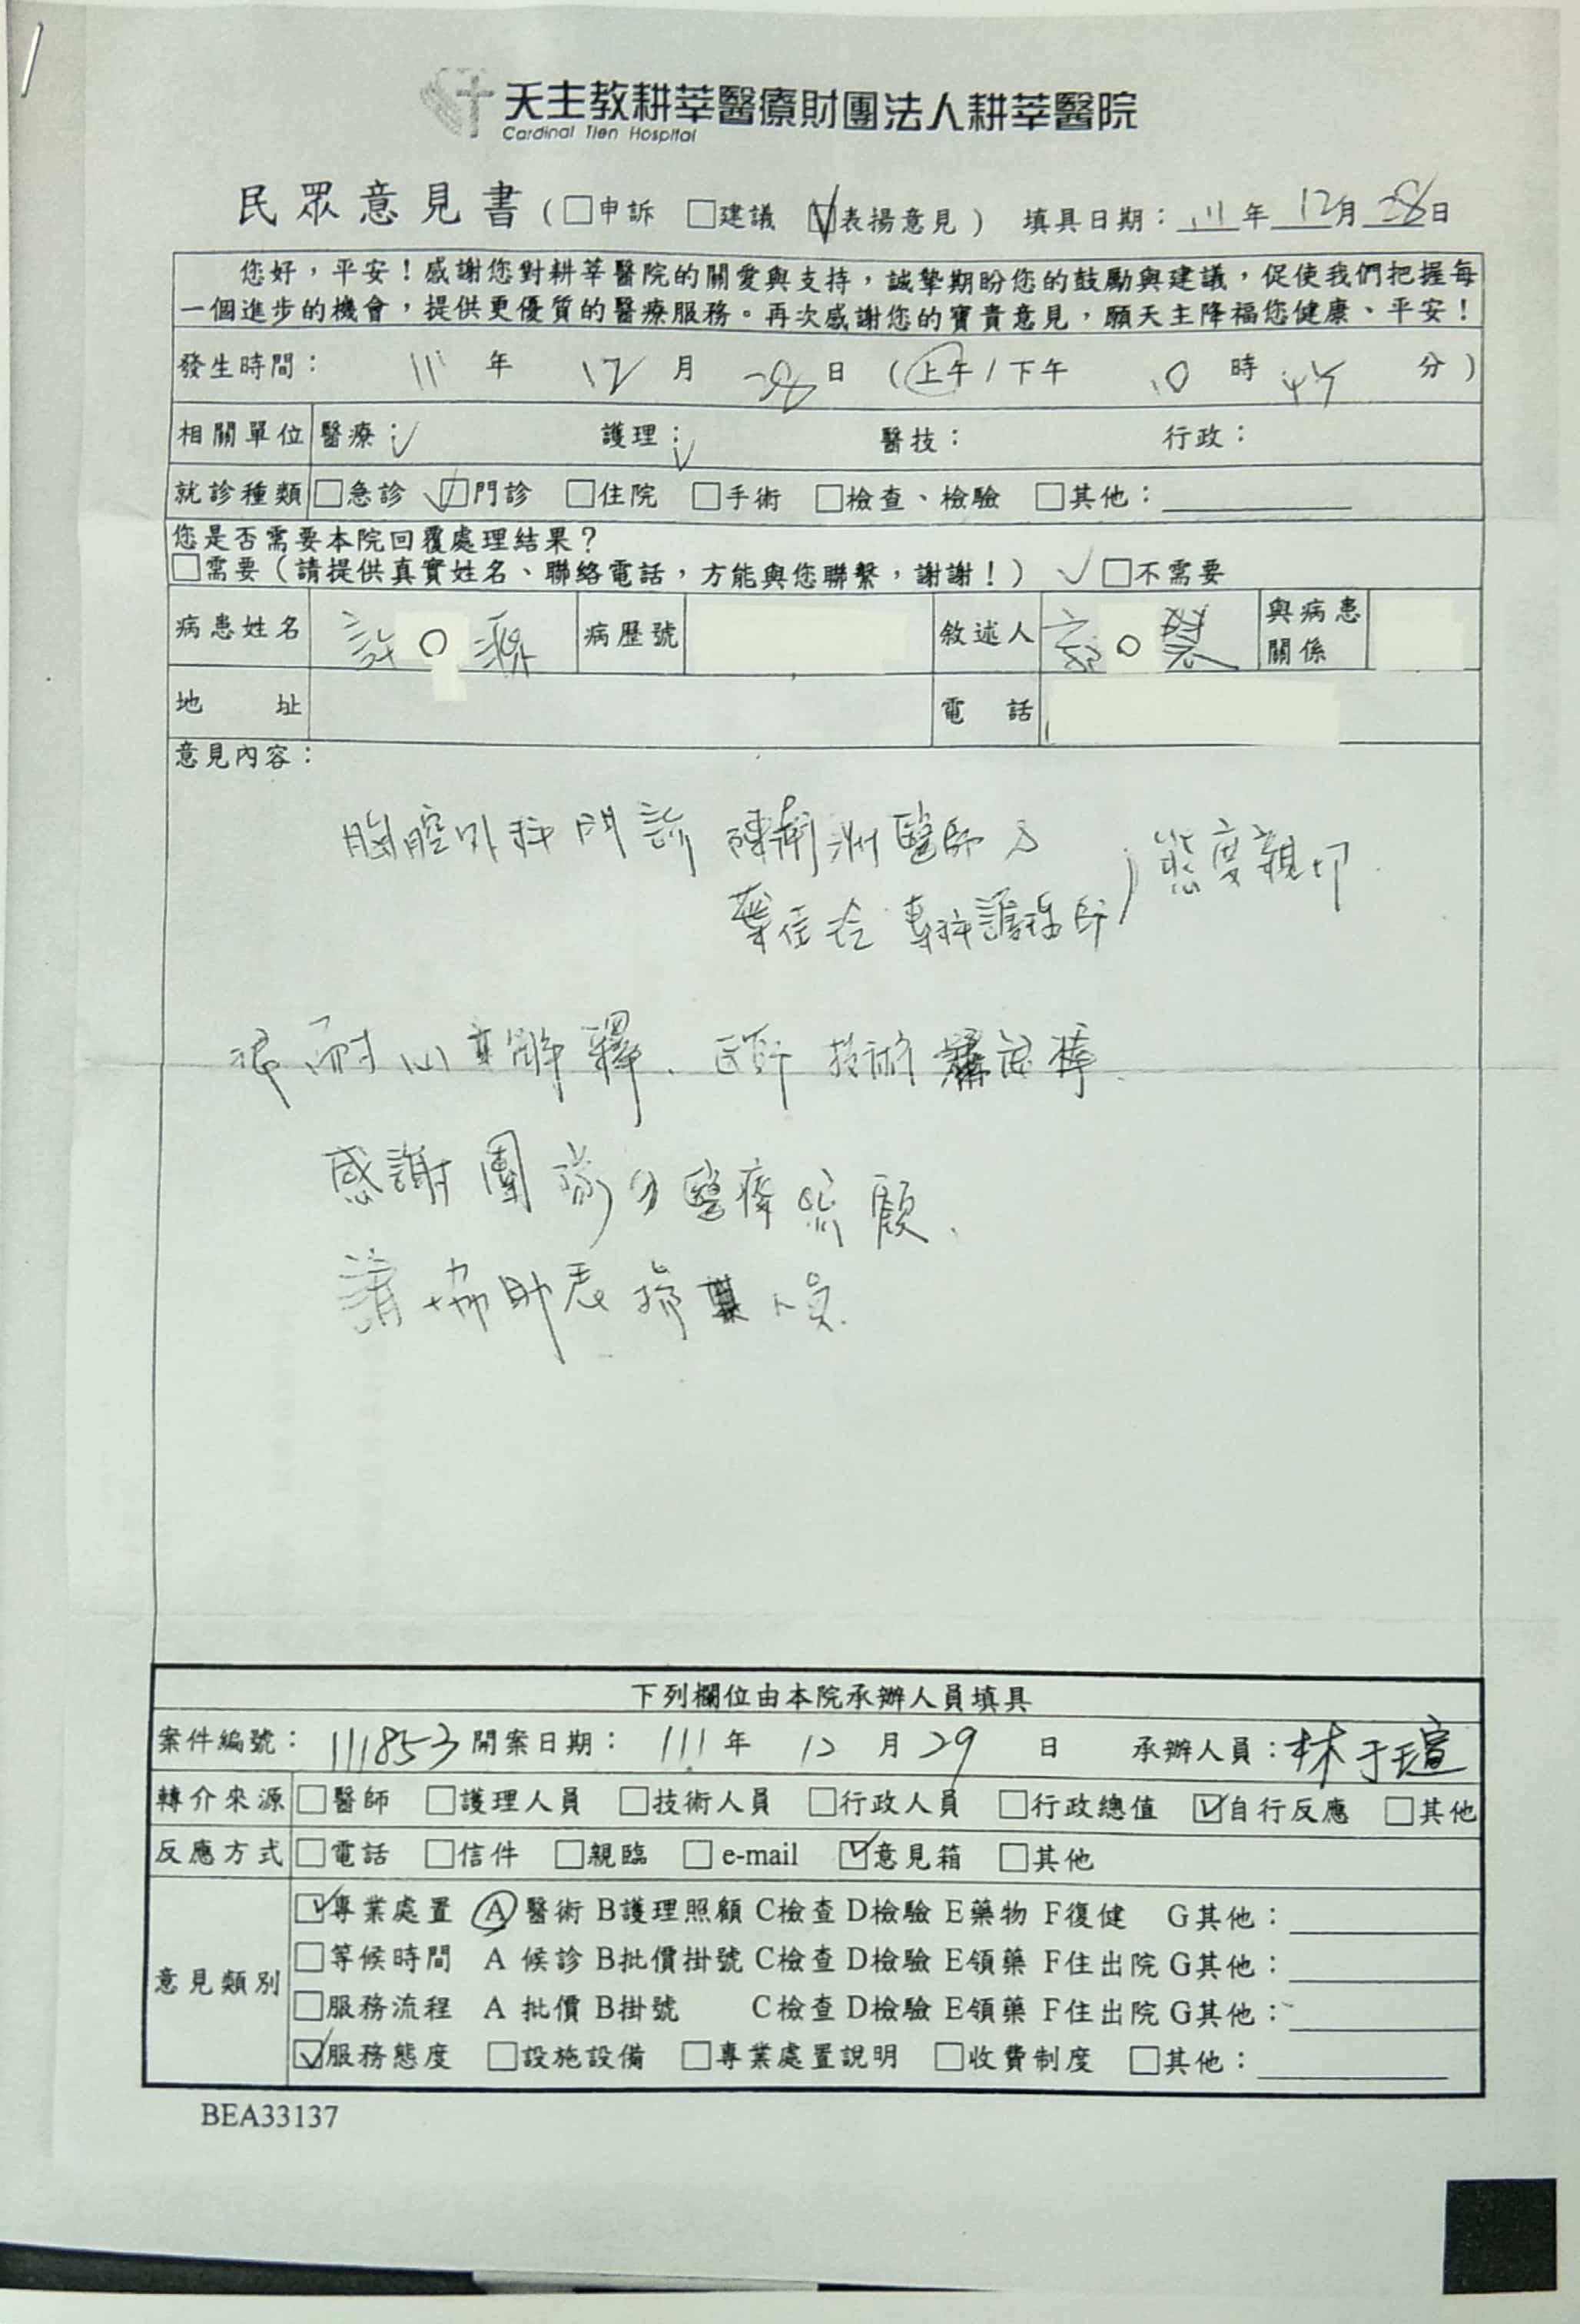 天主教耕莘醫療財團法人耕莘醫院
Cardinal Tien Hospital
民眾意見書(□申訴 □建議 ☑表揚意見) 填具日期：111年12月28日
您好，平安！感謝您對耕莘醫院的關愛與支持，誠摯期盼您的鼓勵與建議，促使我們把握每
一個進步的機會，提供更優質的醫療服務。再次感謝您的寶貴意見，願天主降福您健康、平安！
發生時間： 111 年 12 月 28 日 (上午/下午 10 時 45 分)
相關單位 醫療：✓ 護理：✓ 醫技： 行政：
就診種類 □急診 ☑門診 □住院 □手術 □檢查、檢驗 □其他：
您是否需要本院回覆處理結果？
□需要(請提供真實姓名、聯絡電話，方能與您聯繫，謝謝！) ✓□不需要
病患姓名 許○ 病歷號 敘述人 ○ 與病患關係
地 址 電 話
意見內容：
胸腔外科門診 陳 洲醫師及
葉佳 專科護理師 態度親切
很耐心解釋、醫師技術 棒
感謝團隊的醫療照顧、
請協助表揚 人員.
下列欄位由本院承辦人員填具
案件編號：111853 開案日期：111年 12 月 29 日 承辦人員：林于瑄
轉介來源 □醫師 □護理人員 □技術人員 □行政人員 □行政總值 ☑自行反應 □其他
反應方式 □電話 □信件 □親臨 □e-mail ☑意見箱 □其他
意見類別 ☑專業處置 Ⓐ醫術 B護理照顧 C檢查 D檢驗 E藥物 F復健 G其他：
□等候時間 A 候診 B批價掛號 C檢查 D檢驗 E領藥 F住出院 G其他：
□服務流程 A 批價 B掛號 C檢查 D檢驗 E領藥 F住出院 G其他：
☑服務態度 □設施設備 □專業處置說明 □收費制度 □其他：
BEA33137